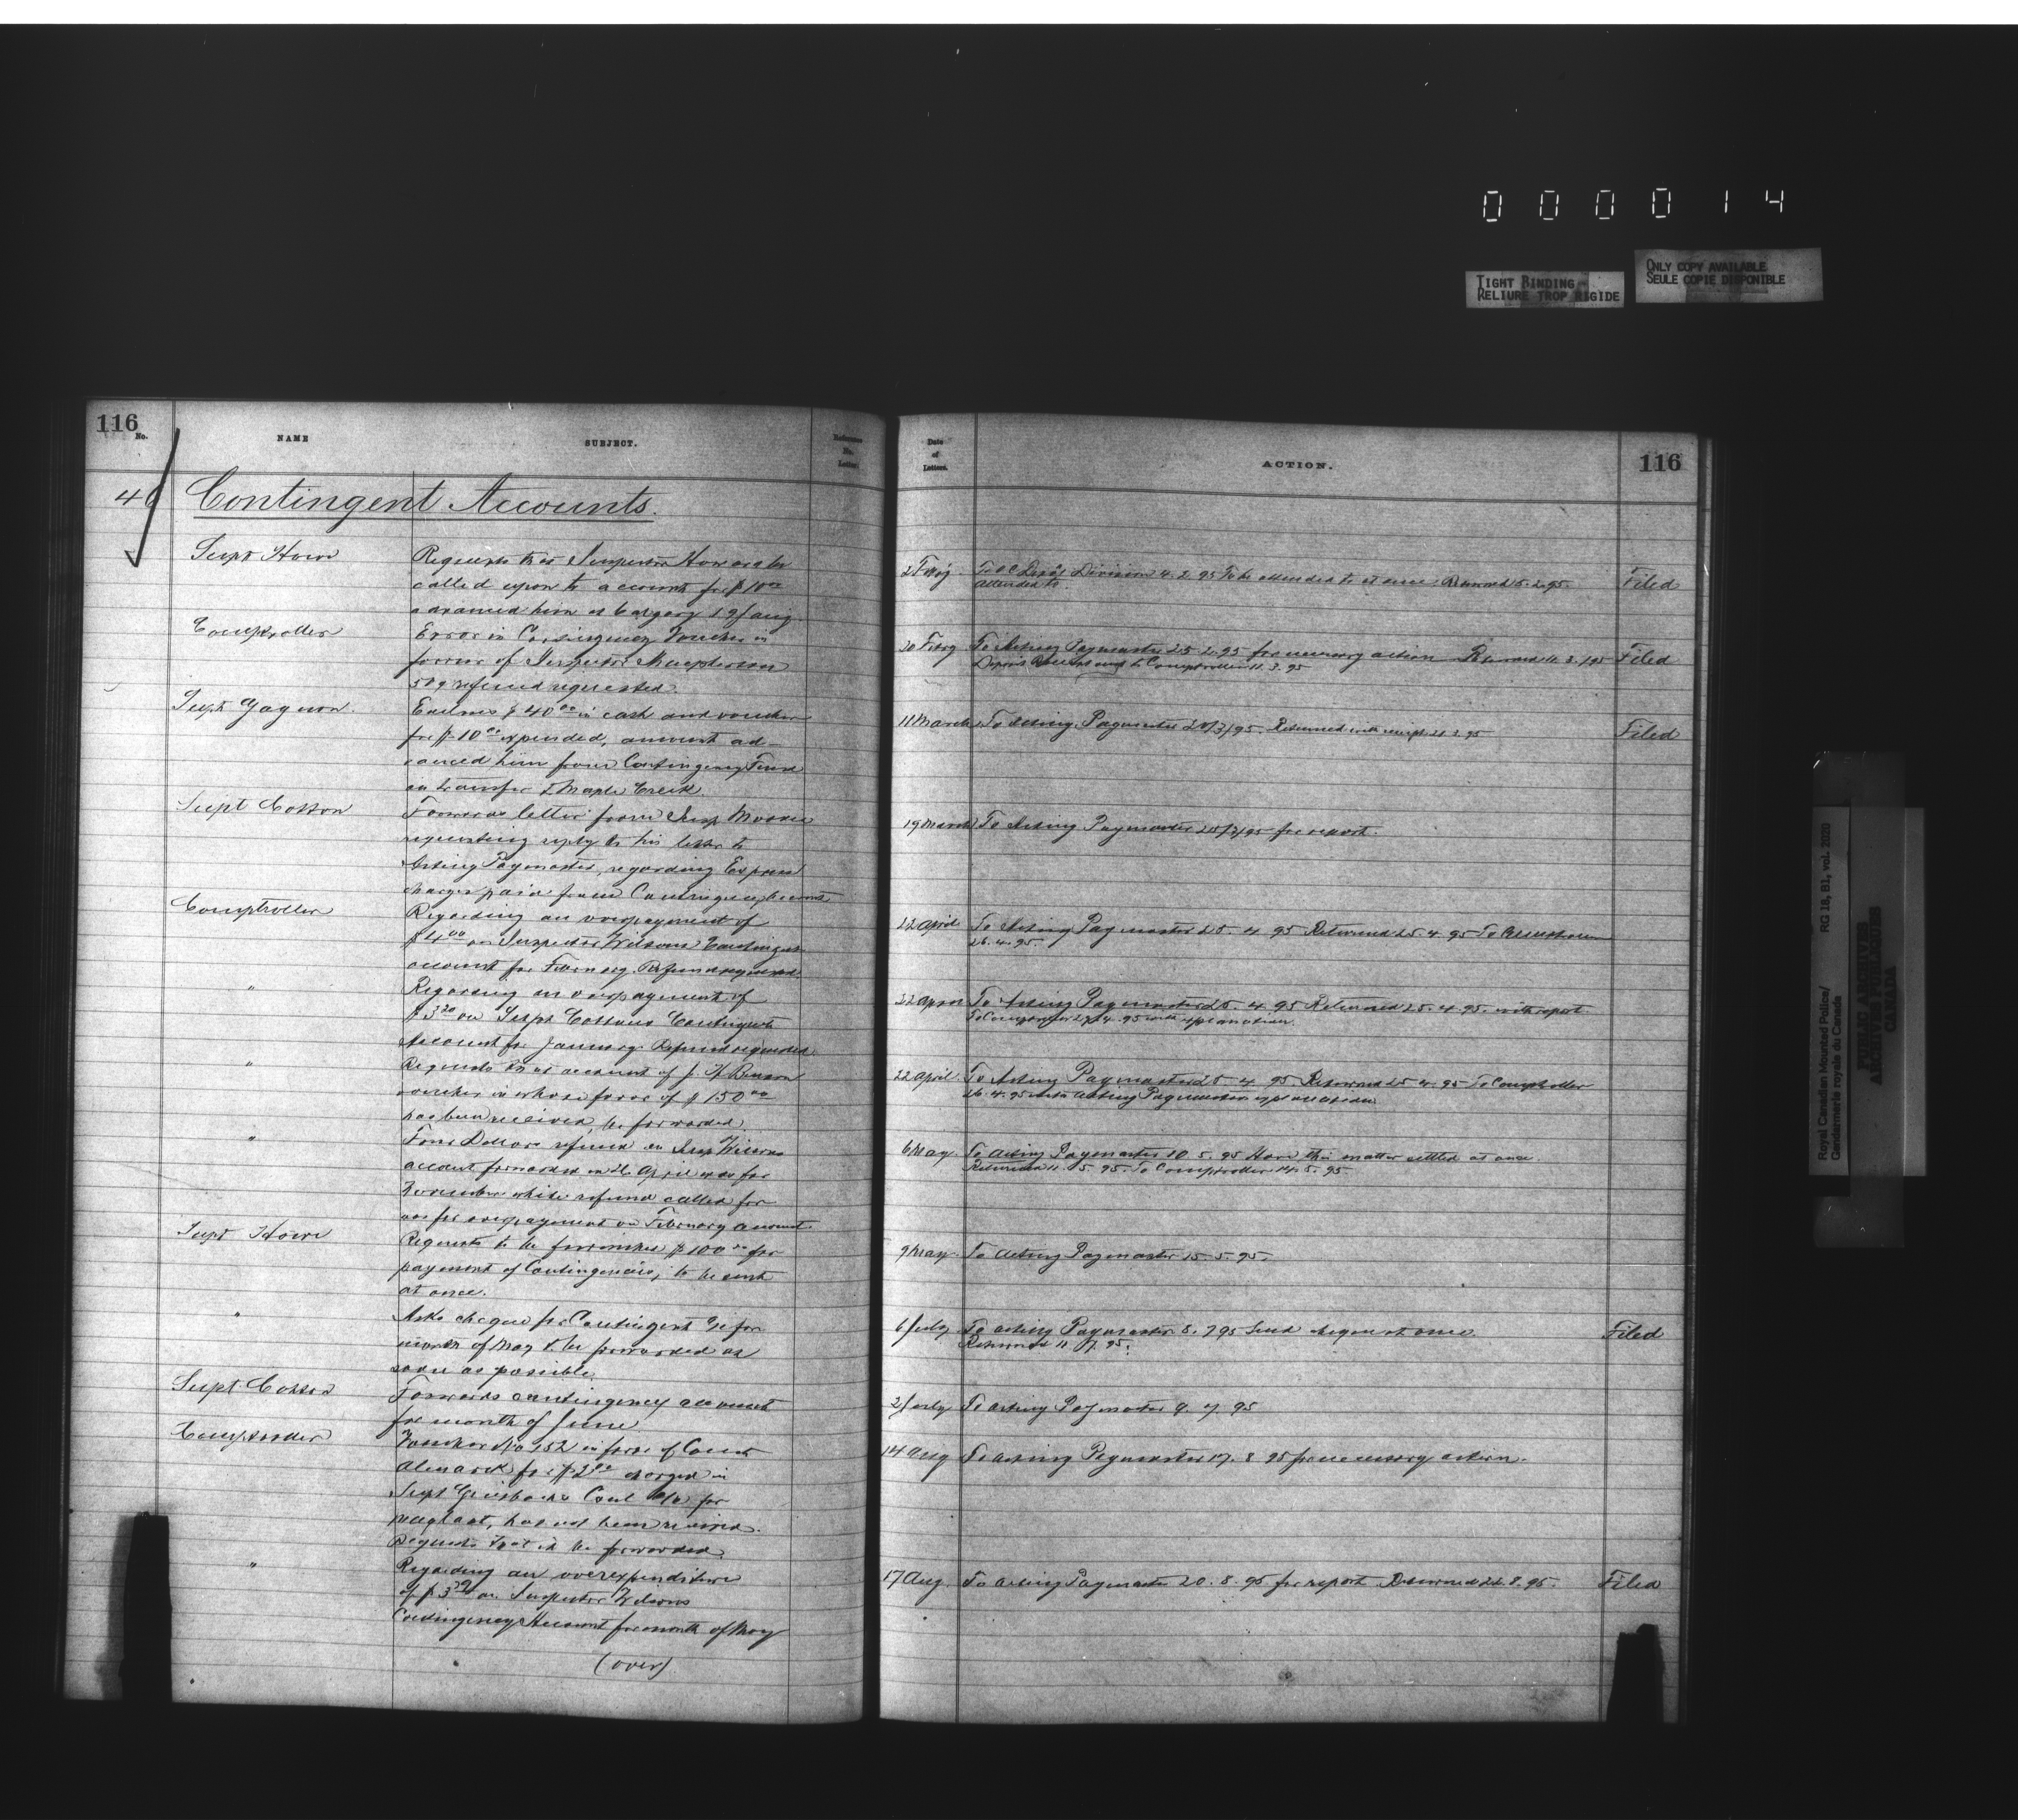 000014
TIGHT BINDING
RELIURE TROP RIGIDE
ONLY COPY AVAILABLE
SEULE COPIE DISPONIBLE
116
No.
NAME
SUBJECT.
Reference
No.
Letter.
46
Contingent Accounts.
Supt Howe
Requests that Inspector Howard be
called upon to account for $10 00
advanced him at Calgary 19/Aug.
Comptroller
Error in Contingency Voucher in
favour of Inspector Macpherson
50¢ refund requested.
Supt Gagnon.
Encloses $40 00 in cash and voucher
for $10 00 expended, amount ad-
vanced him from Contingency Fund
on transfer to Maple Creek.
Supt Cotton
Forwards letter from Insp Moodie
requesting reply to his letter to
Acting Paymaster, regarding Express
charges paid from Contingency Account
Comptroller
Regarding an overpayment of
$4 00 on Inspector Wilsons Contingent
account for February. Refund requested.
"
Regarding an overpayment of
$3 20 on Supt Cottons Contingent
Account for January. Refund requested.
"
Requests that account of J. H. Benson
voucher in whose favor of $150 00
has been received, be forwarded.
"
Four Dollars refund on Insp Wilsons
account forwarded on 26 April was for
November while refund called for
was for overpayment on February account.
Supt Howe
Requests to be furnished $100 00 for
payment of Contingencies, to be sent
at once.
"
Asks cheque for Contingent for
month of May to be forwarded as
soon as possible.
Supt Cotton
Forwards contingency account
for month of June
Comptroller
Voucher No 152 in favor of
for $2 00 charged in
Supt Griesbachs Cont a/c for
has not been received.
Requests that it be forwarded.
"
Regarding an overexpenditure
of $3 on Inspector Wilsons
Contingency Account for month of May
(over)
Date
of
Letters.
ACTION.
116
2 Feby To O.C. Depot Division 4.2.95 To be attended to at once. Returned 5.2.95. Filed
attended to.
20 Feby To Acting Paymaster 25.2.95 for necessary action Returned 11.3.95 Filed
Deposit Receipt sent to Comptroller 11.3.95
11 March To Acting Paymaster 20/3/95. Returned with receipt 21.3.95 Filed
19 March To Acting Paymaster 25/3/95 for report.
22 April To Acting Paymaster 25.4.95 Returned 25.4.95 To Comptroller
26.4.95.
22 April To Acting Paymaster 25.4.95 Returned 25.4.95. with report
To Comptroller 27.4.95 with explanation.
22 April To Acting Paymaster 25.4.95 Returned 25.4.95 To Comptroller
26.4.95 with Acting Paymasters explanation
6 May. To Acting Paymaster 10.5.95 Have this matter settled at once.
Returned 11.5.95. To Comptroller 14.5.95.
9 May. To Acting Paymaster 15.5.95.
6 July To Acting Paymaster 8.7.95 Send cheque at once. Filed
Returned 11.7.95.
2 July To Acting Paymaster 9.7.95
14 Aug To Acting Paymaster 17.8.95 for necessary action.
17 Aug. To Acting Paymaster 20.8.95 for report Returned 22.8.95. Filed
Royal Canadian Mounted Police/
Gendarmerie royale du Canada
RG 18, B1, vol. 2020
PUBLIC ARCHIVES
ARCHIVES PUBLIQUES
CANADA